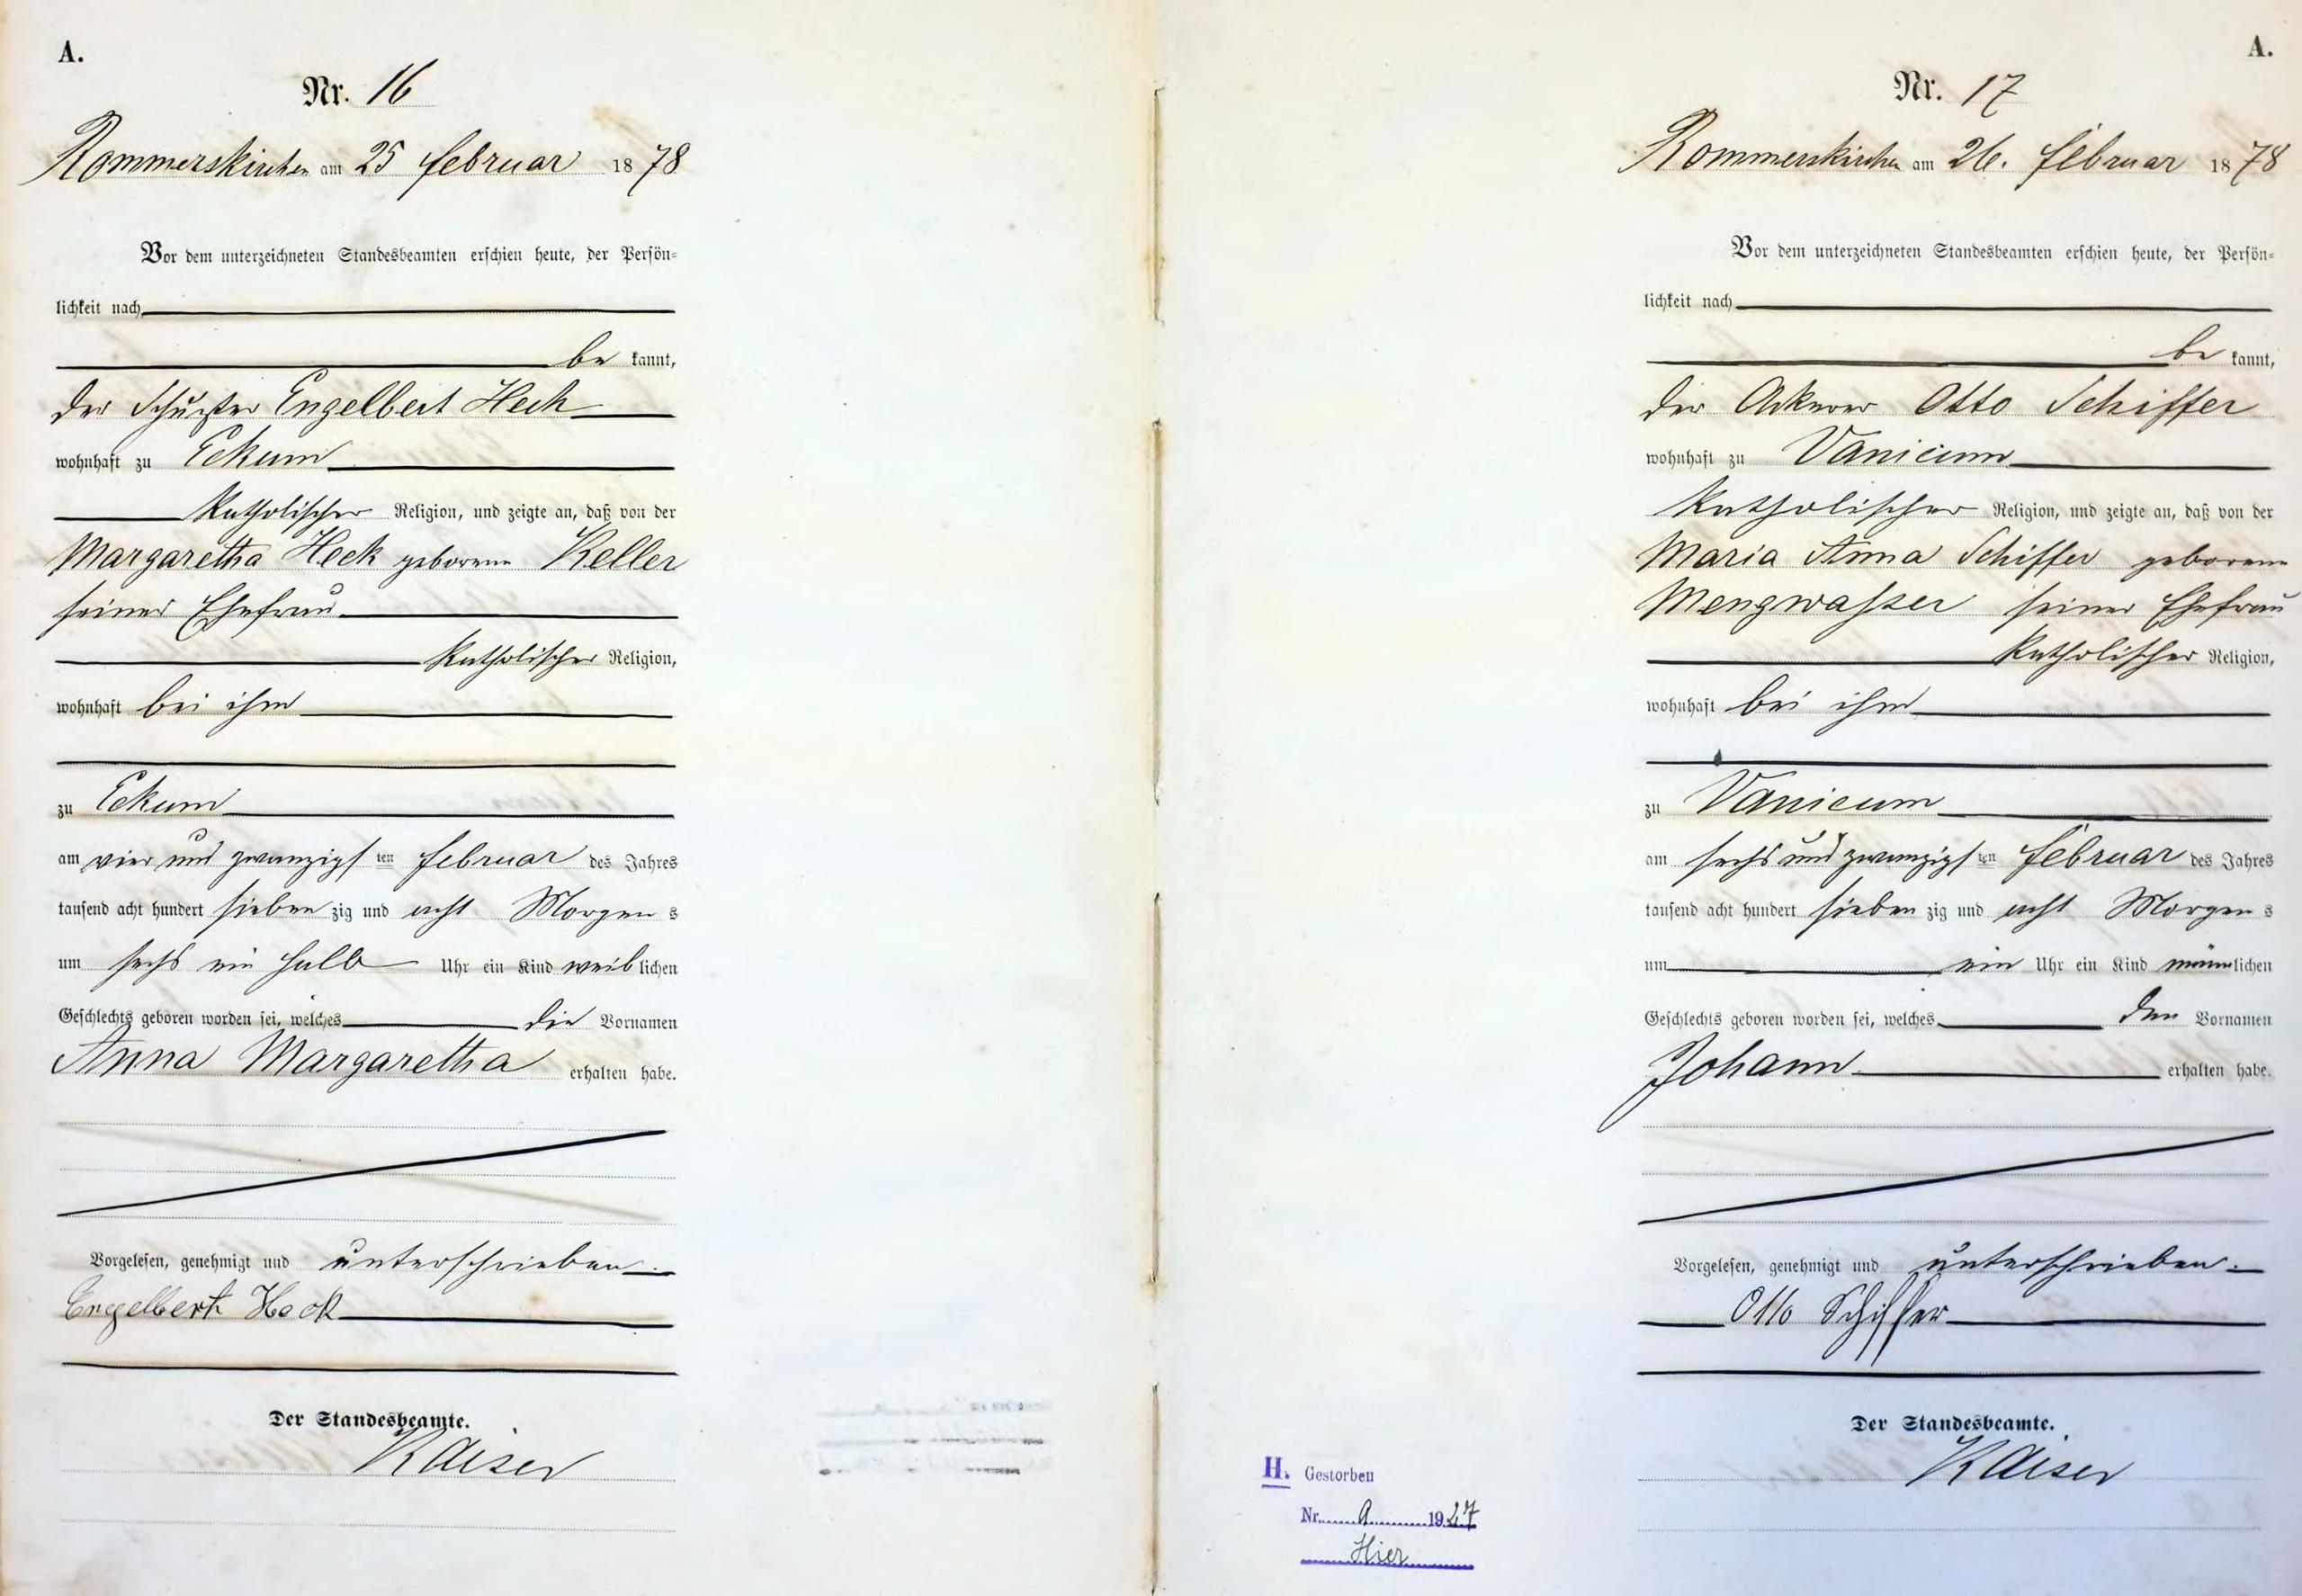 A.
Nr. 16
Rommerskirchen am 25 Februar 1878
Vor dem unterzeichneten Standesbeamten erschien heute, der Persön-
lichkeit nach
be kannt,
der Schuster Engelbert Heck
wohnhaft zu Eckum
katholischer Religion, und zeigte an, daß von der
Margaretha Heck geborene Keller
seiner Ehefrau
katholischer Religion,
wohnhaft bei ihm
zu Eckum
am vier und zwanzigsten Februar des Jahres
tausend acht hundert siebenzig und acht Morgens
um sechs ein halb Uhr ein Kind weiblichen
Geschlechts geboren worden sei, welches die Vornamen
Anna Margaretha erhalten habe.
Vorgelesen, genehmigt und unterschrieben.
Engelbert Heck
Der Standesbeamte.
Kaiser
A.
Nr. 17
Rommerskirchen am 26. Februar 1878
Vor dem unterzeichneten Standesbeamten erschien heute, der Persön-
lichkeit nach
be kannt,
der Ackerer Otto Schiffer
wohnhaft zu Vanicum
katholischer Religion, und zeigte an, daß von der
Maria Anna Schiffer geborene
Mengwasser seiner Ehefrau
katholischer Religion,
wohnhaft bei ihm
zu Vanicum
am sechs und zwanzigsten Februar des Jahres
tausend acht hundert siebenzig und acht Morgens
um ein Uhr ein Kind männlichen
Geschlechts geboren worden sei, welches den Vornamen
Johann erhalten habe.
Vorgelesen, genehmigt und unterschrieben.
Otto Schiffer
Der Standesbeamte.
Kaiser
H. Gestorben
Nr. 9 1927
Hier